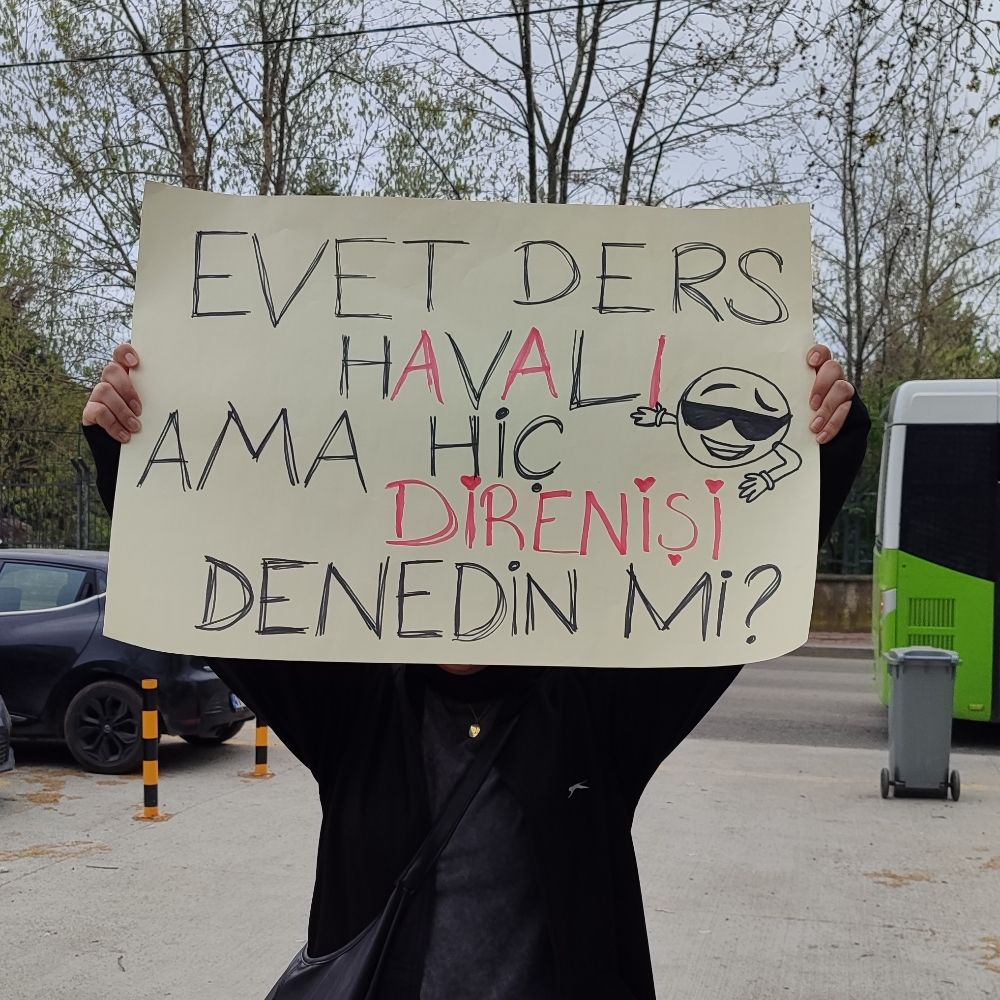 EVET DERS
HAVALI
AMA HİÇ
DİRENİŞİ
DENEDİN Mİ?